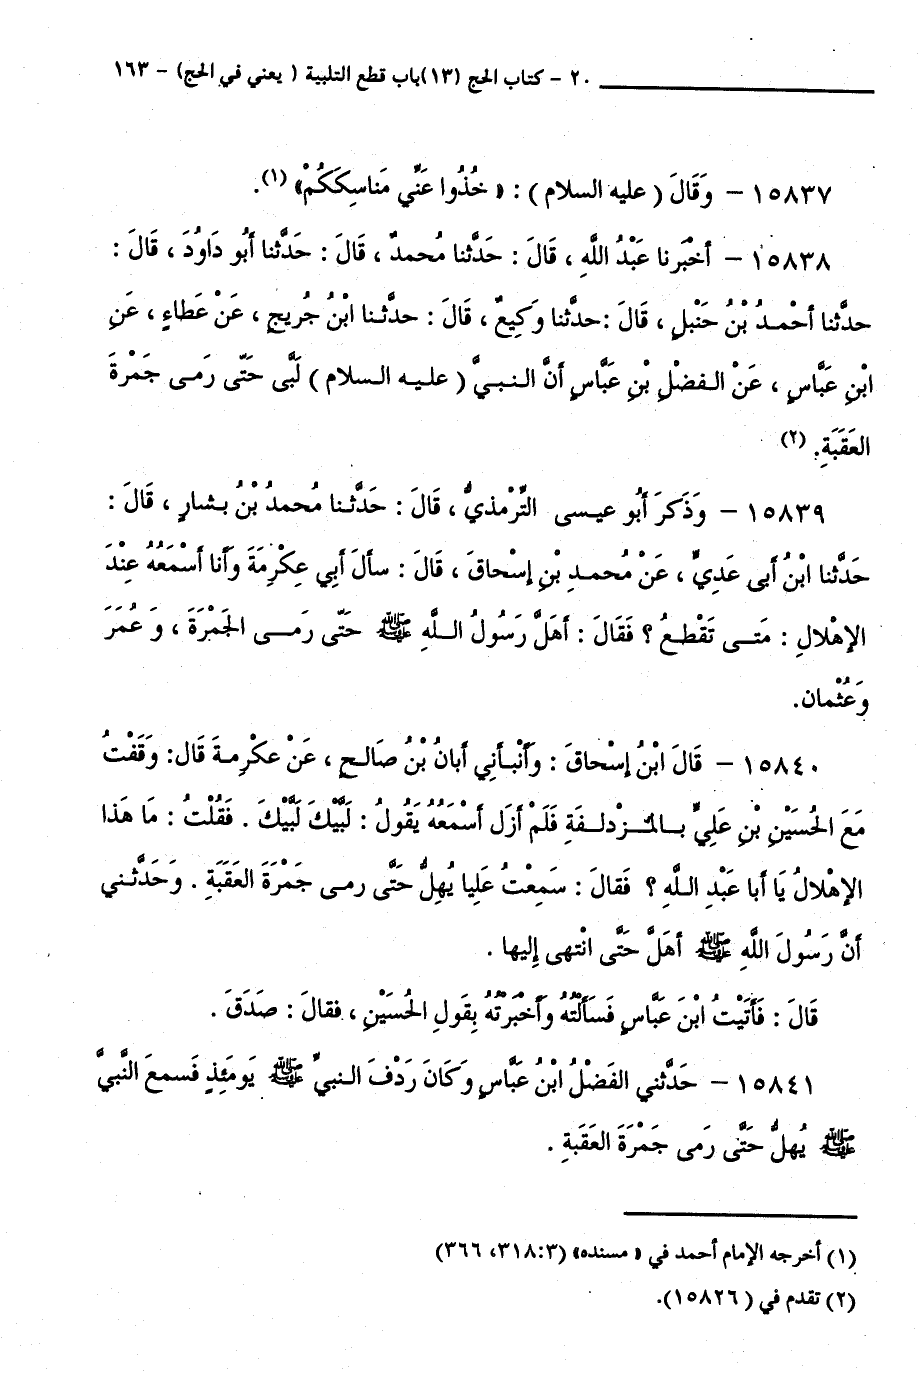 ٢٠ - كتاب الحج (١٣) باب قطع التلبية ( يعني في الحج) - ١٦٣
١٥٨٣٧ - وَقَالَ ( عليه السلام ) : « خُذُوا عَنِّي مَناسِكَكُمْ» (١).
١٥٨٣٨ - أخْبَرنا عَبْدُ اللَّهِ ، قَالَ : حَدَّثنا محمدٌ ، قَالَ : حَدَّثنا أبُو دَاودُ ، قَالَ :
حدَّثنا أحْمـدُ بْنُ حَنْبَلٍ ، قَالَ :حدَّثنا وَكِيعٌ ، قَالَ : حدَّثـنا ابْنُ جُريجٍ ، عَنْ عَطاءٍ ، عَنِ
ابْنِ عَبَّاسٍ ، عَنْ الـفضْلِ بْنِ عَبَّاسٍ أنَّ الـنـبـيَّ ( عليـه الـسلام ) لَبَّى حَتَّى رَمـى جَمْرةَ
العَقَبَةِ. (٢)
١٥٨٣٩ - وَذَكرَ أبُو عيـسى التِّرْمذيُّ ، قَالَ : حَدَّثـنا مُحمدُ بْنُ بـشارٍ ، قَالَ :
حَدَّثنا ابْنُ أبى عَديٍّ ، عَنْ مُحمـدِ بْنِ إسْحاقَ ، قَالَ : سألَ أبِي عِكْرِمَةَ وَأنا أسْمَعُهُ عِنْدَ
الإهْلالِ : مَتـى تَقْطـعُ ؟ فَقَالَ : أهَلَّ رَسُولُ الـلَّهِ ﷺ حَتَّى رَمـى الجَمْرَةَ ، وَ عُمَرَ
وَعُثْمان.
١٥٨٤٠ - قَالَ ابْنُ إسْحاقَ : وَأنْبـأنِي أبانُ بْنُ صَالـحٍ ، عَنْ عكْرِمـةَ قَال: وَقَفْتُ
مَعَ الحُسَيْنِ بْنِ عَلِيٍّ بـالمُـزْدلـفَةِ فَلَمْ أزَل أسْمَعُهُ يَقُولُ : لَبَّيْكَ لَبَّيْكَ . فَقُلْتُ : مَا هَذا
الإهْلالُ يَا أبا عَبْدِ الـلَّهِ ؟ فَقالَ : سَمِعْتُ عَليا يُهِلُّ حَتَّى رمـى جَمْرَةَ العَقَبَةِ . وَحَدَّثـنـي
أنَّ رَسُولَ اللَّهِ ﷺ أهَلَّ حَتَّى انْتهى إليها .
قَالَ : فَأتَيْتُ ابْنَ عَبَّاسٍ فَسَألَتْهُ وَأخْبَرْتُهُ بِقَولِ الحُسَيْنِ ، فقالَ : صَدَقَ .
١٥٨٤١ - حَدَّثني الفَضْلُ ابْنُ عَبَّاسٍ وَكَانَ رَدْفَ النبيِّ ﷺ يَومَئِذٍ فَسمعَ النَّبيَّ
ﷺ يُهلُّ حَتَّى رَمى جَمْرَةَ العَقَبَةِ .
(١) أخرجه الإمام أحمد في « مسنده» (٣١٨:٣، ٣٦٦)
(٢) تقدم في ( ١٥٨٢٦).